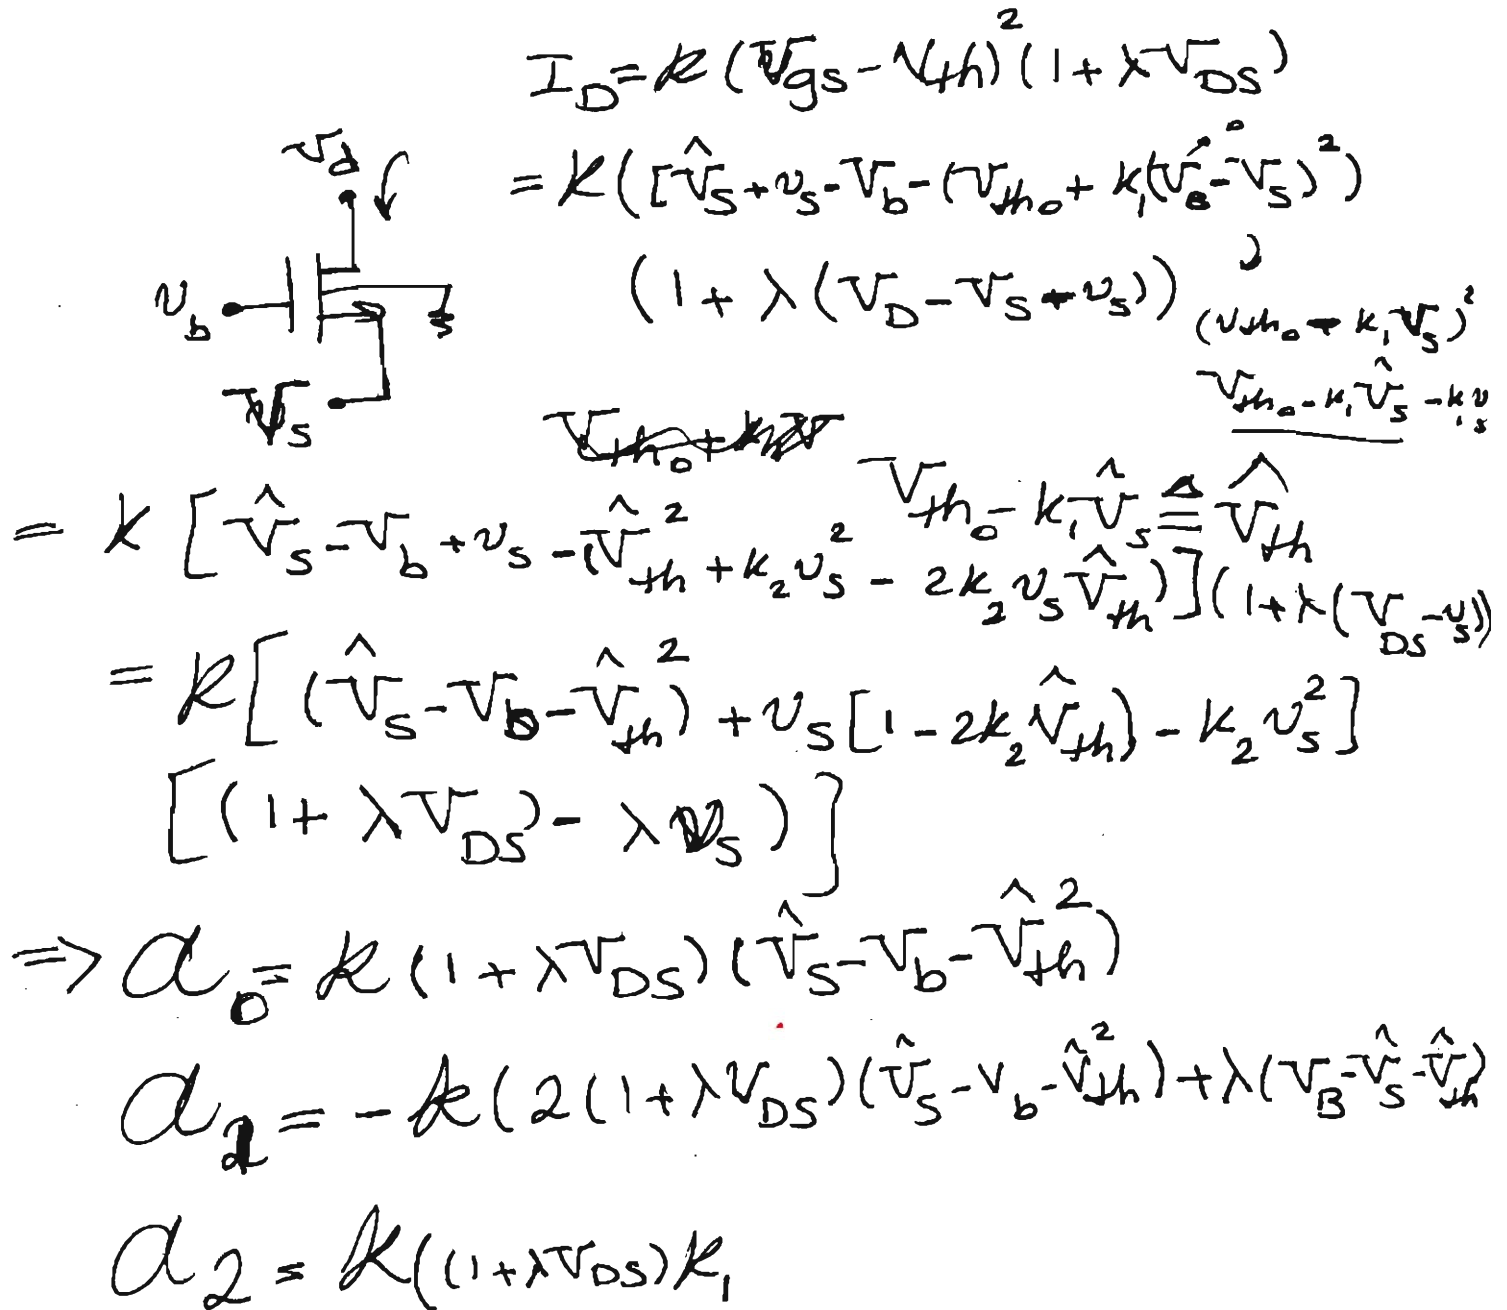 I_D = k (V_gs - V_th)^2 (1 + λ V_DS)
V_d
= k ([V̂_S + v_s - V_b - (V_th0 + k_1(V_B - V_S)^2)
(1 + λ (V_D - V_S - v_s))
v_b
(V_th0 - k_1 V_S)^2
V_s
V_th0 - k_1 V̂_s - k_1 v_s
V_th0 - k_1 V̂_s ≜ V̂_th
= k [V̂_S - V_b + v_s - (V̂_th^2 + k_2 v_s^2 - 2k_2 v_s V̂_th)] (1 + λ(V_DS - v_s))
= k [(V̂_S - V_b - V̂_th^2) + v_s [1 - 2k_2 V̂_th) - k_2 v_s^2]
[(1 + λ V_DS) - λ v_s)]
⇒ a_0 = k (1 + λ V_DS) (V̂_S - V_b - V̂_th^2)
a_1 = -k (2 (1 + λ V_DS) (V̂_S - V_b - V̂_th^2) + λ (V_B - V̂_S - V̂_th)
a_2 = k ((1 + λ V_DS) k_1